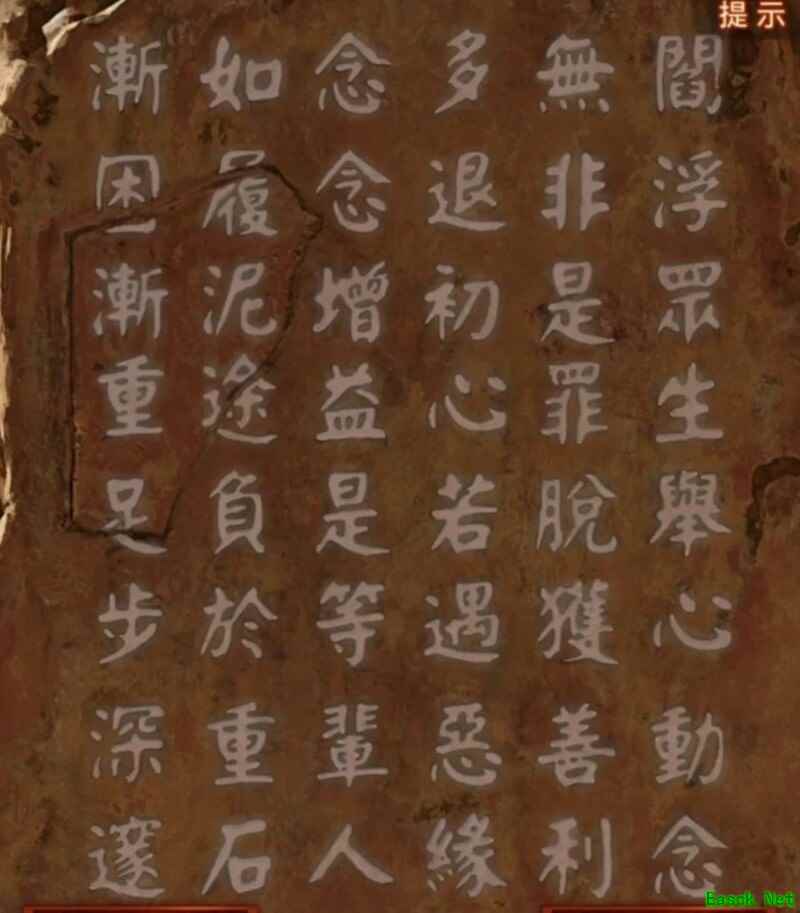 提示
閻浮眾生舉心動念
無非是罪脫獲善利
多退初心若遇惡緣
念念增益是等輩人
如履泥途負於重石
漸困漸重足步深邃
Easck.Net